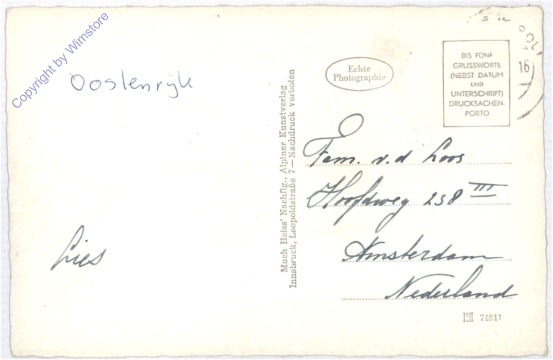 Copyright by Wimstore
Oostenrijk
Lies
Much Heiss' Nachflg., Alpiner Kunstverlag
Innsbruck, Leopoldstraße 7 — Nachdruck verboten
Echte
Photographie
BIS FÜNF
GRUSSWORTE
(NEBST DATUM
UND
UNTERSCHRIFT)
DRUCKSACHEN-
PORTO
16
Fam. v.d Loos
Hoofdweg 238 III
Amsterdam
Nederland